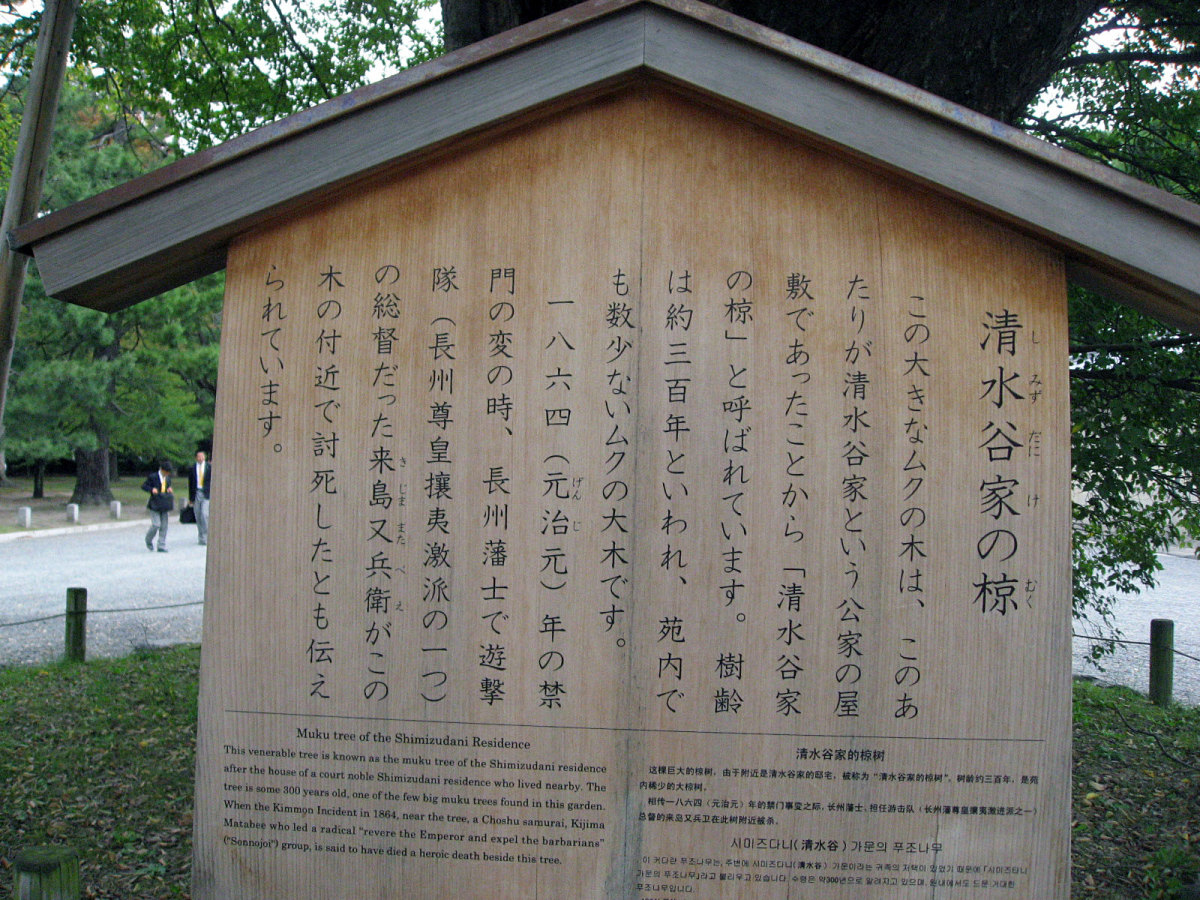 清水谷家の椋
しみずだにけ むく
この大きなムクの木は、このあ
たりが清水谷家という公家の屋
敷であったことから「清水谷家
の椋」と呼ばれています。樹齢
は約三百年といわれ、苑内で
も数少ないムクの大木です。
一八六四(元治元)年の禁
げんじ
門の変の時、長州藩士で遊撃
隊(長州尊皇攘夷激派の一つ)
の総督だった来島又兵衛がこの
きじままたべえ
木の付近で討死したとも伝え
られています。
Muku tree of the Shimizudani Residence
This venerable tree is known as the muku tree of the Shimizudani residence
after the house of a court noble Shimizudani residence who lived nearby. The
tree is some 300 years old, one of the few big muku trees found in this garden.
When the Kimmon Incident in 1864, near the tree, a Choshu samurai, Kijima
Matabee who led a radical "revere the Emperor and expel the barbarians"
("Sonnojoi") group, is said to have died a heroic death beside this tree.
清水谷家的椋树
这棵巨大的椋树，由于附近是清水谷家的邸宅，被称为"清水谷家的椋树"。树龄约三百年，是苑
内稀少的大椋树。
相传一八六四(元治元)年的禁门事变之际，长州藩士、担任游击队(长州藩尊皇攘夷激进派之一)
总督的来岛又兵卫在此树附近被杀。
시미즈다니(清水谷) 가문의 푸조나무
이 커다란 푸조나무는, 주변에 시미즈다니(清水谷) 가문이라는 귀족의 저택이 있었기 때문에 「시미즈타니
가문의 푸조나무」라고 불리우고 있습니다. 수령은 약300년으로 알려지고 있으며, 원내에서도 드문 거대한
푸조나무입니다.